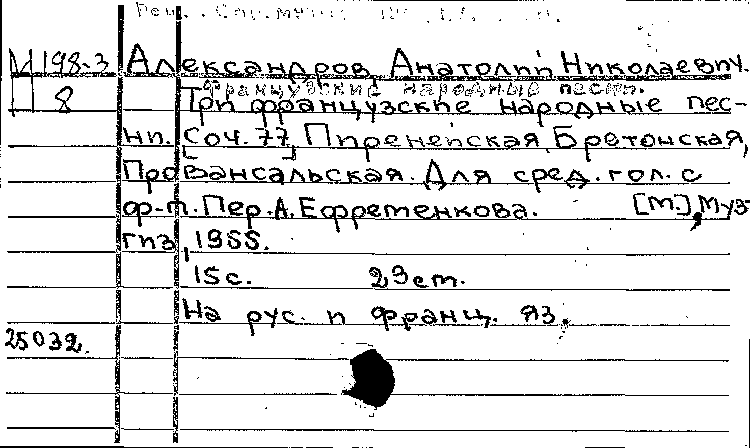 М 198-3 Александров, Анатолий Николаевич.
Французские народные песни.
8 Три французские народные пес-
ни. [Соч. 77], Пиренейская, Бретонская,
Провансальская. Для сред. гол. с
ф-п. Пер. А. Ефременкова. [М.], Муз-
гиз, 1955.
15 с. 29 cm.
На рус. и франц. яз.
25032.